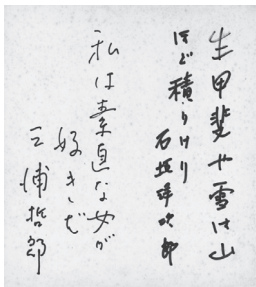 生甲斐や雪は山
ほど積りけり
石坂洋次郎
私は素直な女が
好きだ
三浦哲郎